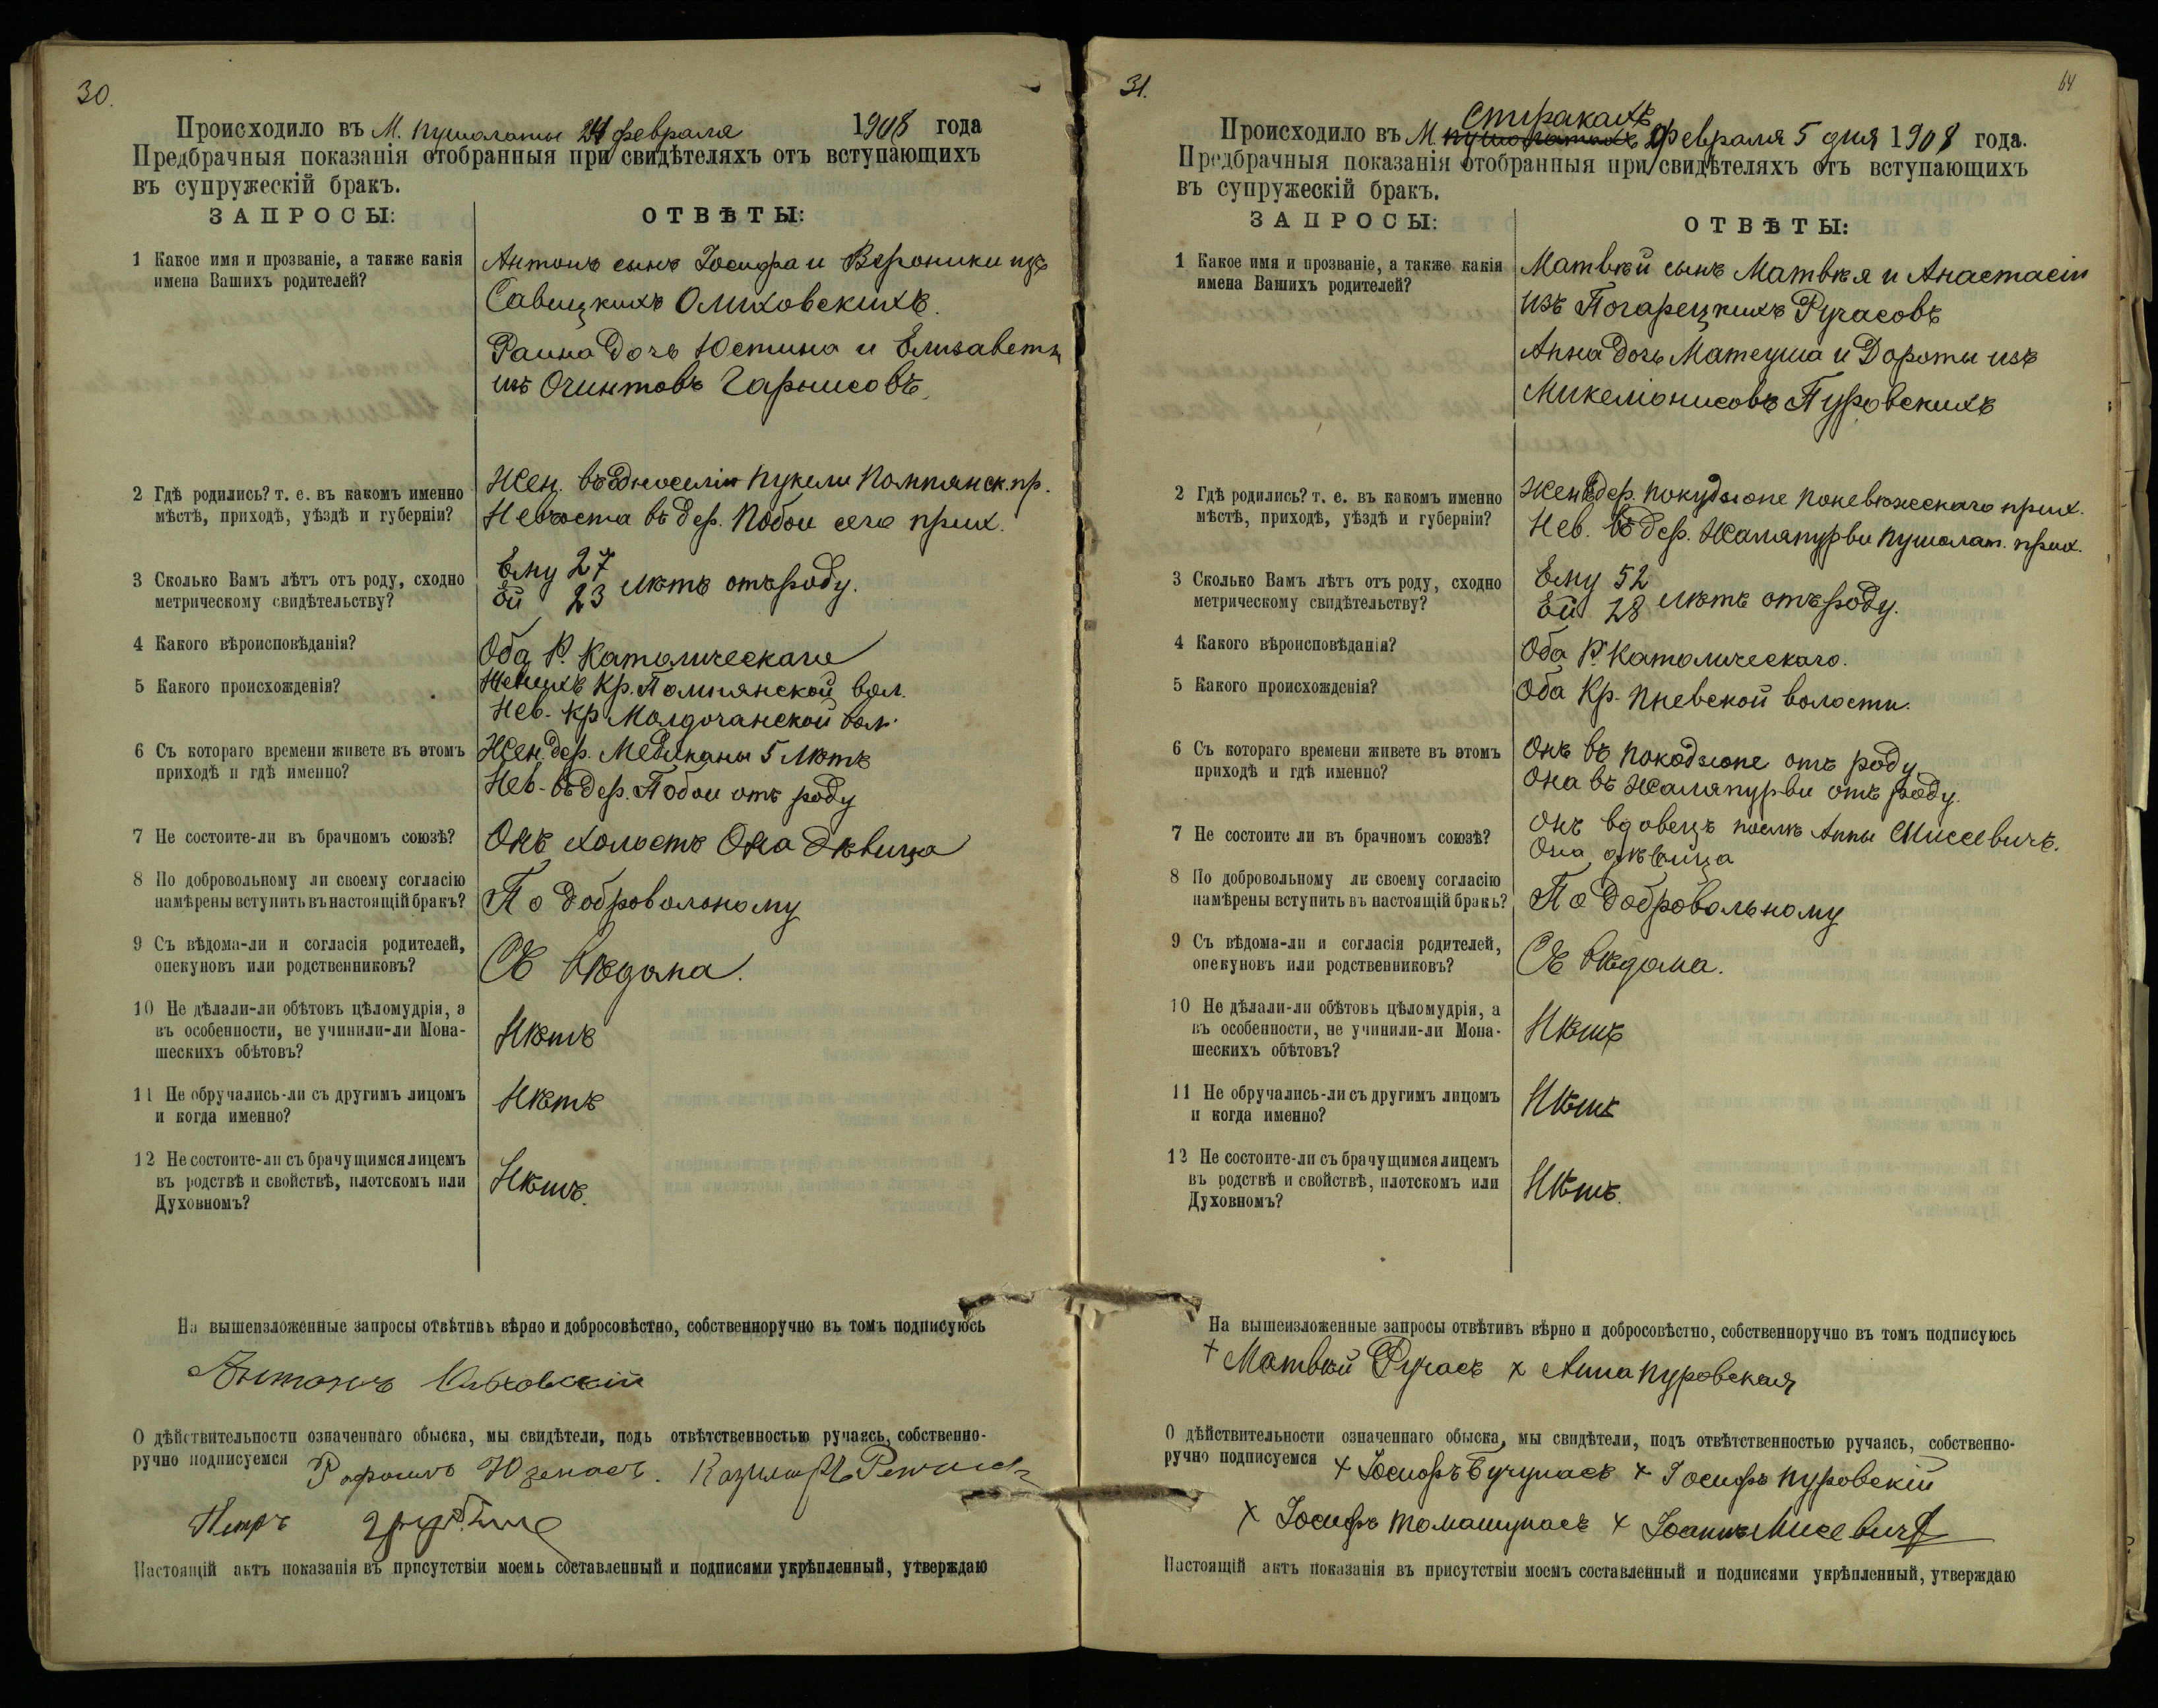 30.
Происходило въ М. Пушолаты 24 февраля 1908 года
Предбрачныя показанія отобранныя при свидѣтеляхъ отъ вступающихъ
въ супружескій бракъ.
ЗАПРОСЫ: ОТВѢТЫ:
1 Какое имя и прозваніе, а также какія
имена Вашихъ родителей?
Антонъ сынъ Іосифа и Вероники изъ
Савицкихъ Олиховскихъ.
Раина дочь Юстина и Елизаветы
изъ Очинтовъ Гарнисовъ.
2 Гдѣ родились? т. е. въ какомъ именно
мѣстѣ, приходѣ, уѣздѣ и губерніи?
Жен. въ односеліи Пукели Помпянск. пр.
Невѣста въ дер. Побои сего прих.
3 Сколько Вамъ лѣтъ отъ роду, сходно
метрическому свидѣтельству?
Ему 27
Ей 23 лѣтъ отъ роду.
4 Какого вѣроисповѣданія?
Оба Р. Католическаго
5 Какого происхожденія?
Женихъ Кр. Помпянской вол.
Нев. Кр. Молдочанской вол.
6 Съ котораго времени живете въ этомъ
приходѣ и гдѣ именно?
Жен. дер. Медиканы 5 лѣтъ
Нев. въ дер. Побои отъ роду
7 Не состоите-ли въ брачномъ союзѣ?
Онъ холостъ Она дѣвица
8 По добровольному ли своему согласію
намѣрены вступить въ настоящій бракъ?
По добровольному
9 Съ вѣдома-ли и согласія родителей,
опекуновъ или родственниковъ?
Съ вѣдома.
10 Не дѣлали-ли обѣтовъ цѣломудрія, а
въ особенности, не учинили-ли Мона-
шескихъ обѣтовъ?
Нѣтъ
11 Не обручались-ли съ другимъ лицомъ
и когда именно?
Нѣтъ
12 Не состоите-ли съ брачущимся лицемъ
въ родствѣ и свойствѣ, плотскомъ или
Духовномъ?
Нѣтъ.
На вышеизложенные запросы отвѣтивъ вѣрно и добросовѣстно, собственноручно въ томъ подписуюсь
Антонъ Ольховскій
О дѣйствительности означеннаго обыска, мы свидѣтели, подъ отвѣтственностью ручаясь, собственно-
ручно подписуемся Юзенасъ. Казимиръ
Петръ
Настоящій актъ показанія въ присутствіи моемъ составленный и подписями укрѣпленный, утверждаю
31. 64
Стракахъ
Происходило въ М. Пушолатахъ февраля 5 дня 1908 года.
Предбрачныя показанія отобранныя при свидѣтеляхъ отъ вступающихъ
въ супружескій бракъ.
ЗАПРОСЫ: ОТВѢТЫ:
1 Какое имя и прозваніе, а также какія
имена Вашихъ родителей?
Матвѣй сынъ Матвѣя и Анастасіи
изъ Погарецкихъ Ручасовъ
Анна дочь Матеуша и Дороты изъ
Микеліонисовъ Пуровскихъ
2 Гдѣ родились? т. е. въ какомъ именно
мѣстѣ, приходѣ, уѣздѣ и губерніи?
Жен. въ дер. Покудзіопе Поневѣжскаго прих.
Нев. въ дер. Жаляпурви Пушолат. прих.
3 Сколько Вамъ лѣтъ отъ роду, сходно
метрическому свидѣтельству?
Ему 52
Ей 28 лѣтъ отъ роду.
4 Какого вѣроисповѣданія?
Оба Р. Католическаго.
5 Какого происхожденія?
Оба Кр. Пневской волости.
6 Съ котораго времени живете въ этомъ
приходѣ и гдѣ именно?
Онъ въ Покодзіопе отъ роду
Она въ Жаляпурви отъ роду.
7 Не состоите ли въ брачномъ союзѣ?
Онъ вдовецъ послѣ Анны Мисевичъ.
Она дѣвица
8 По добровольному ли своему согласію
намѣрены вступить въ настоящій бракъ?
По добровольному
9 Съ вѣдома-ли и согласія родителей,
опекуновъ или родственниковъ?
Съ вѣдома.
10 Не дѣлали-ли обѣтовъ цѣломудрія, а
въ особенности, не учинили-ли Мона-
шескихъ обѣтовъ?
Нѣтъ
11 Не обручались-ли съ другимъ лицомъ
и когда именно?
Нѣтъ
12 Не состоите-ли съ брачущимся лицемъ
въ родствѣ и свойствѣ, плотскомъ или
Духовномъ?
Нѣтъ.
На вышеизложенные запросы отвѣтивъ вѣрно и добросовѣстно, собственноручно въ томъ подписуюсь
+ Матвѣй Ручасъ x Анна Пуровская
О дѣйствительности означеннаго обыска, мы свидѣтели, подъ отвѣтственностью ручаясь, собственно-
ручно подписуемся + Іосифъ Бучунасъ + Іосифъ Пуровскій
x Іосифъ Томашунасъ x Іоаннъ Мисевичъ
Настоящій актъ показанія въ присутствіи моемъ составленный и подписями укрѣпленный, утверждаю